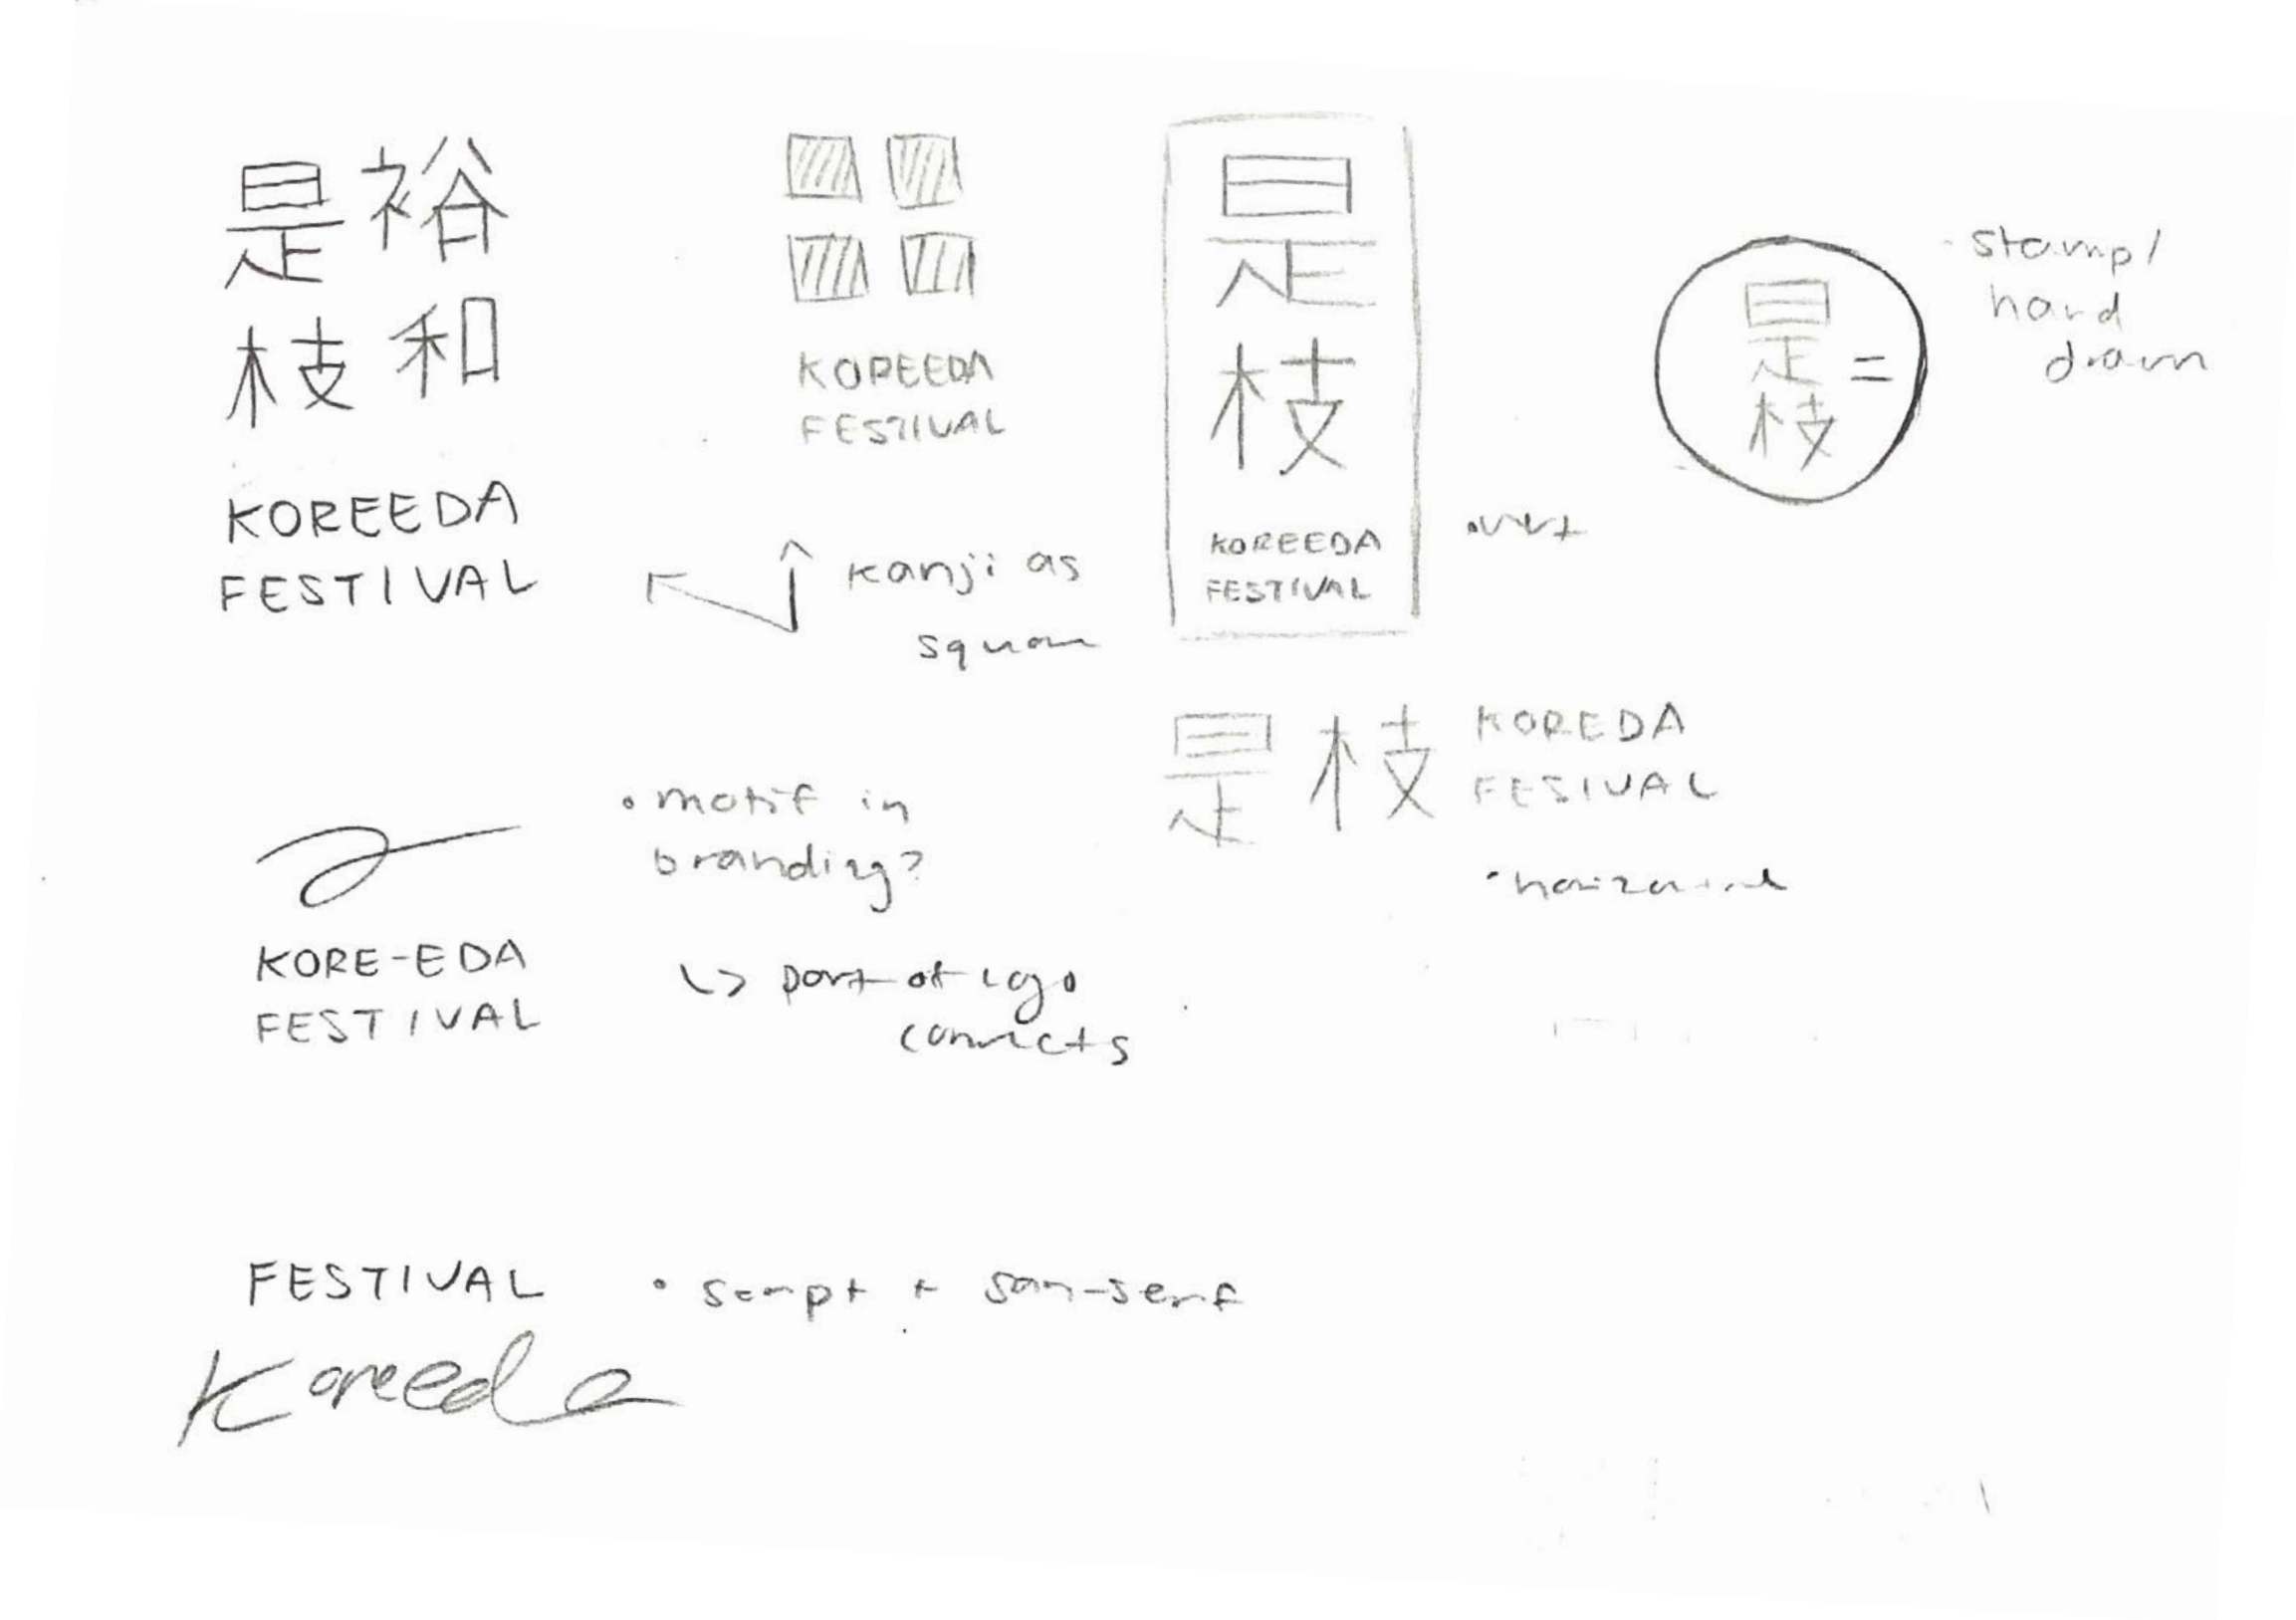 是裕
枝和
KOREEDA
FESTIVAL
KOREEDA
FESTIVAL
kanji as
square
是
枝
KOREEDA
FESTIVAL
•vert
是
枝
=
•stamp/
hand
drawn
是枝
KOREDA
FESIVAL
•horizontal
KORE-EDA
FESTIVAL
•motif in
branding?
↳ part of logo
connects
FESTIVAL
Koreeda
•script + san-serif